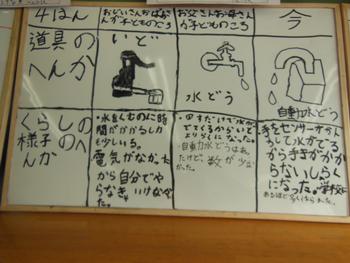 4はん
おじいさんおばあさ
んが子どものころ
お父さんお母さん
が子どものころ
今
道具の
へんか
いど
水どう
自動水どう
くらしの
様子のへ
んか
・水をくむのに時
間がかかるしか
も少しいる。
電気がなかった
から自分でや
らなきゃいけなか
った。
・回すだけで水が
でてくるからいど
よりらくになった。
・自動水どうはあっ
たけど、数が少な
かった。
手をセンサーにかん
かして水がでる
から手きがかか
らないしらく
になった。学校に